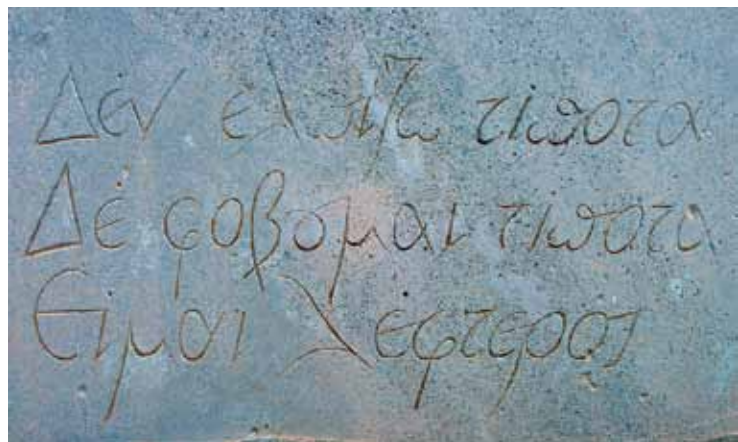 Δεν ἐλπίζω τίποτα
Δέ φοβομαι τιποτα
Ειμαι λεφτερος